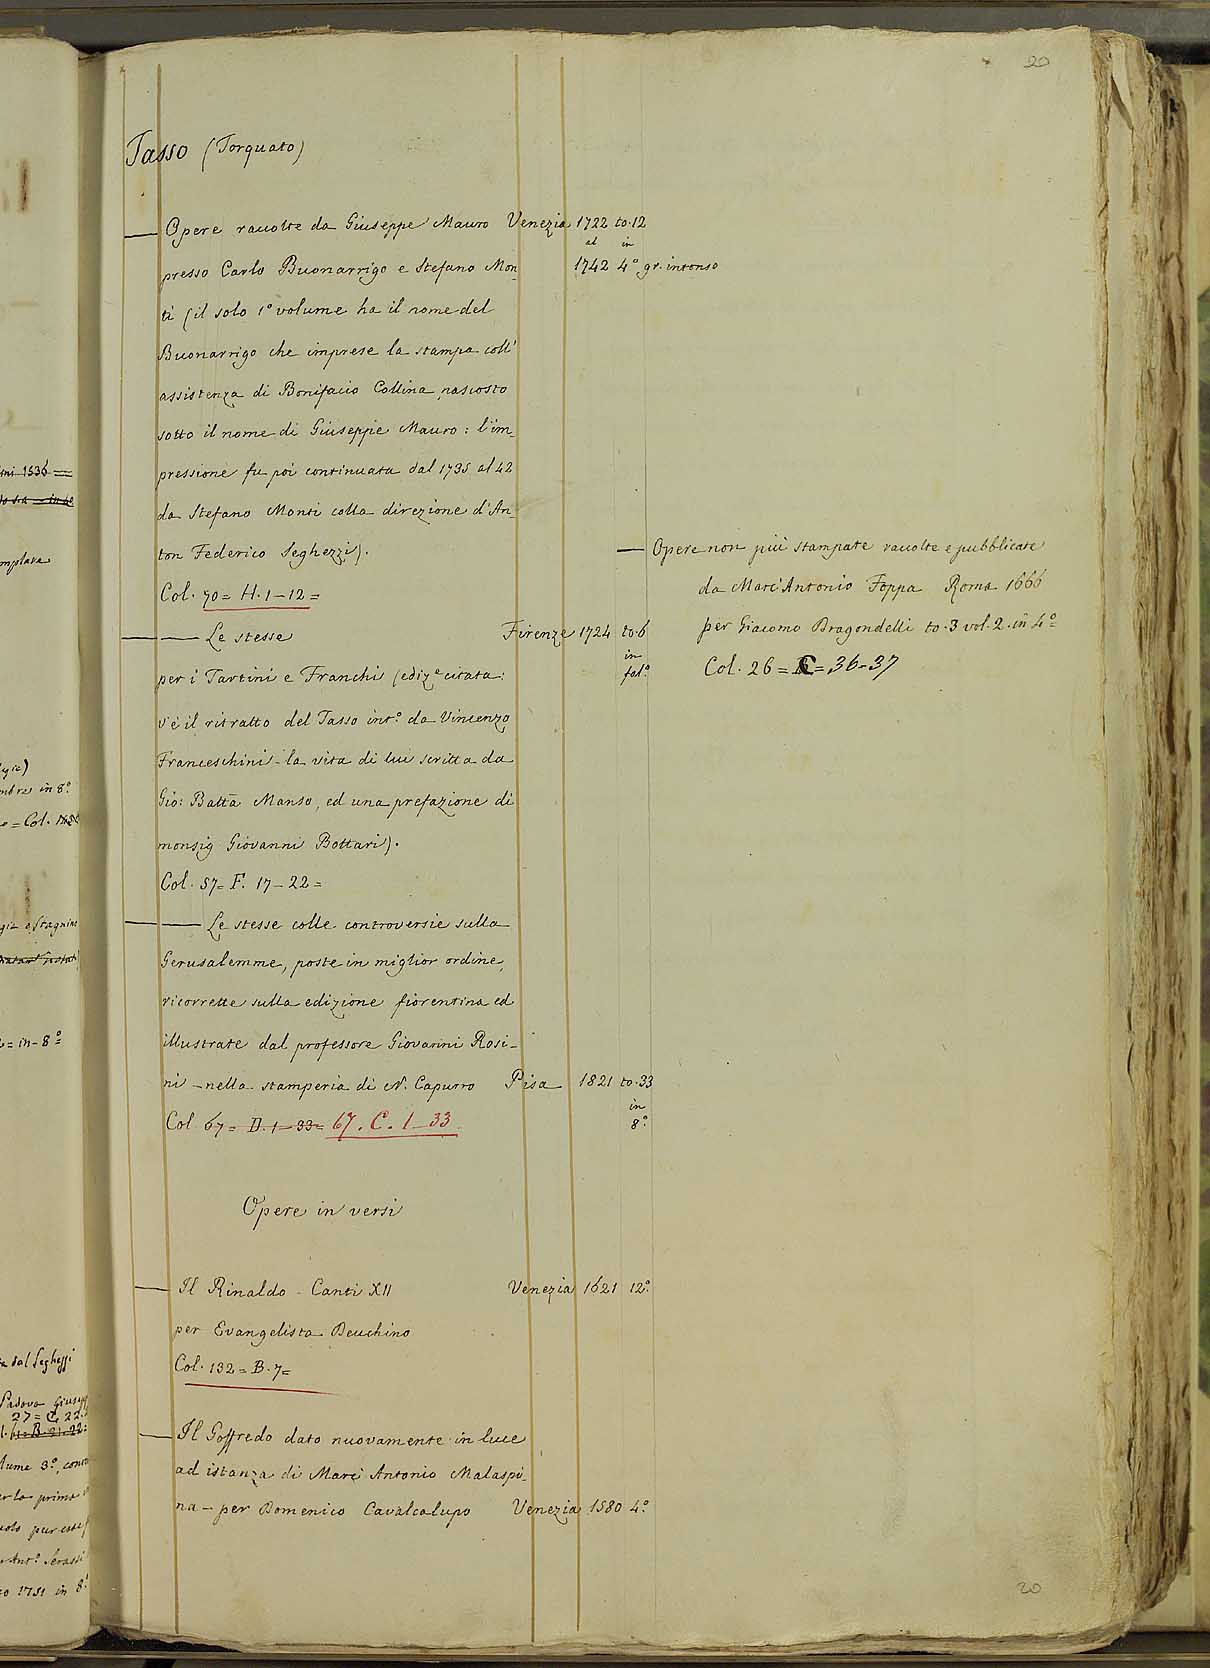 20
Tasso (Torquato)
— Opere raccolte da Giuseppe Mauro Venezia 1722 to. 12
al in
presso Carlo Buonarrigo e Stefano Mon= 1742 4º gr. intonso
ti (il solo 1º volume ha il nome del
Buonarrigo che imprese la stampa coll'
assistenza di Bonifacio Collina nascosto
sotto il nome di Giuseppe Mauro: l'im=
pressione fu poi continuata dal 1735 al 42
da Stefano Monti colla direzione d'An=
ton Federico Seghezzi).
Col. 70 = H. 1–12 =
—— Le stesse Firenze 1724 to. 6
in
per i Tartini e Franchi (edizᵉ citata: folº
v'è il ritratto del Tasso intº da Vincenzo
Franceschini – la vita di lui scritta da
Gio: Batta Manso, ed una prefazione di
monsig Giovanni Bottari).
Col. 57 = F. 17–22 =
—— Le stesse colle controversie sulla
Gerusalemme, poste in miglior ordine,
ricorrette sulla edizione fiorentina ed
illustrate dal professore Giovanni Rosi=
ni – nella stamperia di N. Capurro Pisa 1821 to. 33
in
Col 67 = D. 1–33 = 67. C. 1–33 8º
Opere in versi
— Il Rinaldo – Canti XII Venezia 1621 12º
per Evangelista Deuchino
Col. 132 = B. 7 =
— Il Goffredo dato nuovamente in luce
ad istanza di Marc'Antonio Malaspi=
na – per Domenico Cavalcalupo Venezia 1580 4º
— Opere non più stampate raccolte e pubblicate
da Marc'Antonio Foppa Roma 1666
per Giacomo Dragondelli to. 3 vol. 2. in 4º =
Col. 26 = C = 36–37
20
1536 =
in 8º
= Col.
= in – 8º
dal Seghezzi
Padova Giusep
27 = C. 22
B. 21. 22
3º
prima
Antº Serassi
1751 in 8º